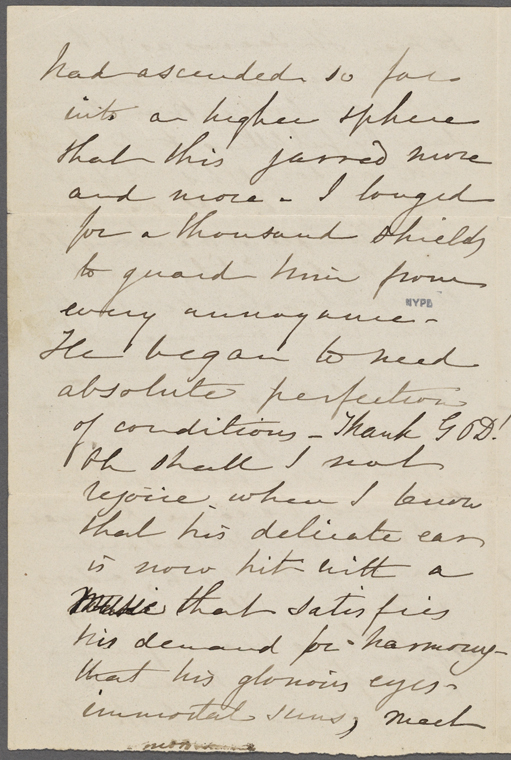 had ascended so far
into a higher sphere
that this jarred more
and more - I longed
for a thousand shields
to guard him from
NYPL
every annoyance -
He began to need
absolute perfection
of conditions - Thank GOD!
Oh shall I not
rejoice when I know
that his delicate ear
is now hit with a
Music that satisfies
his demand for harmony -
that his glorious eyes -
immortal suns, meet